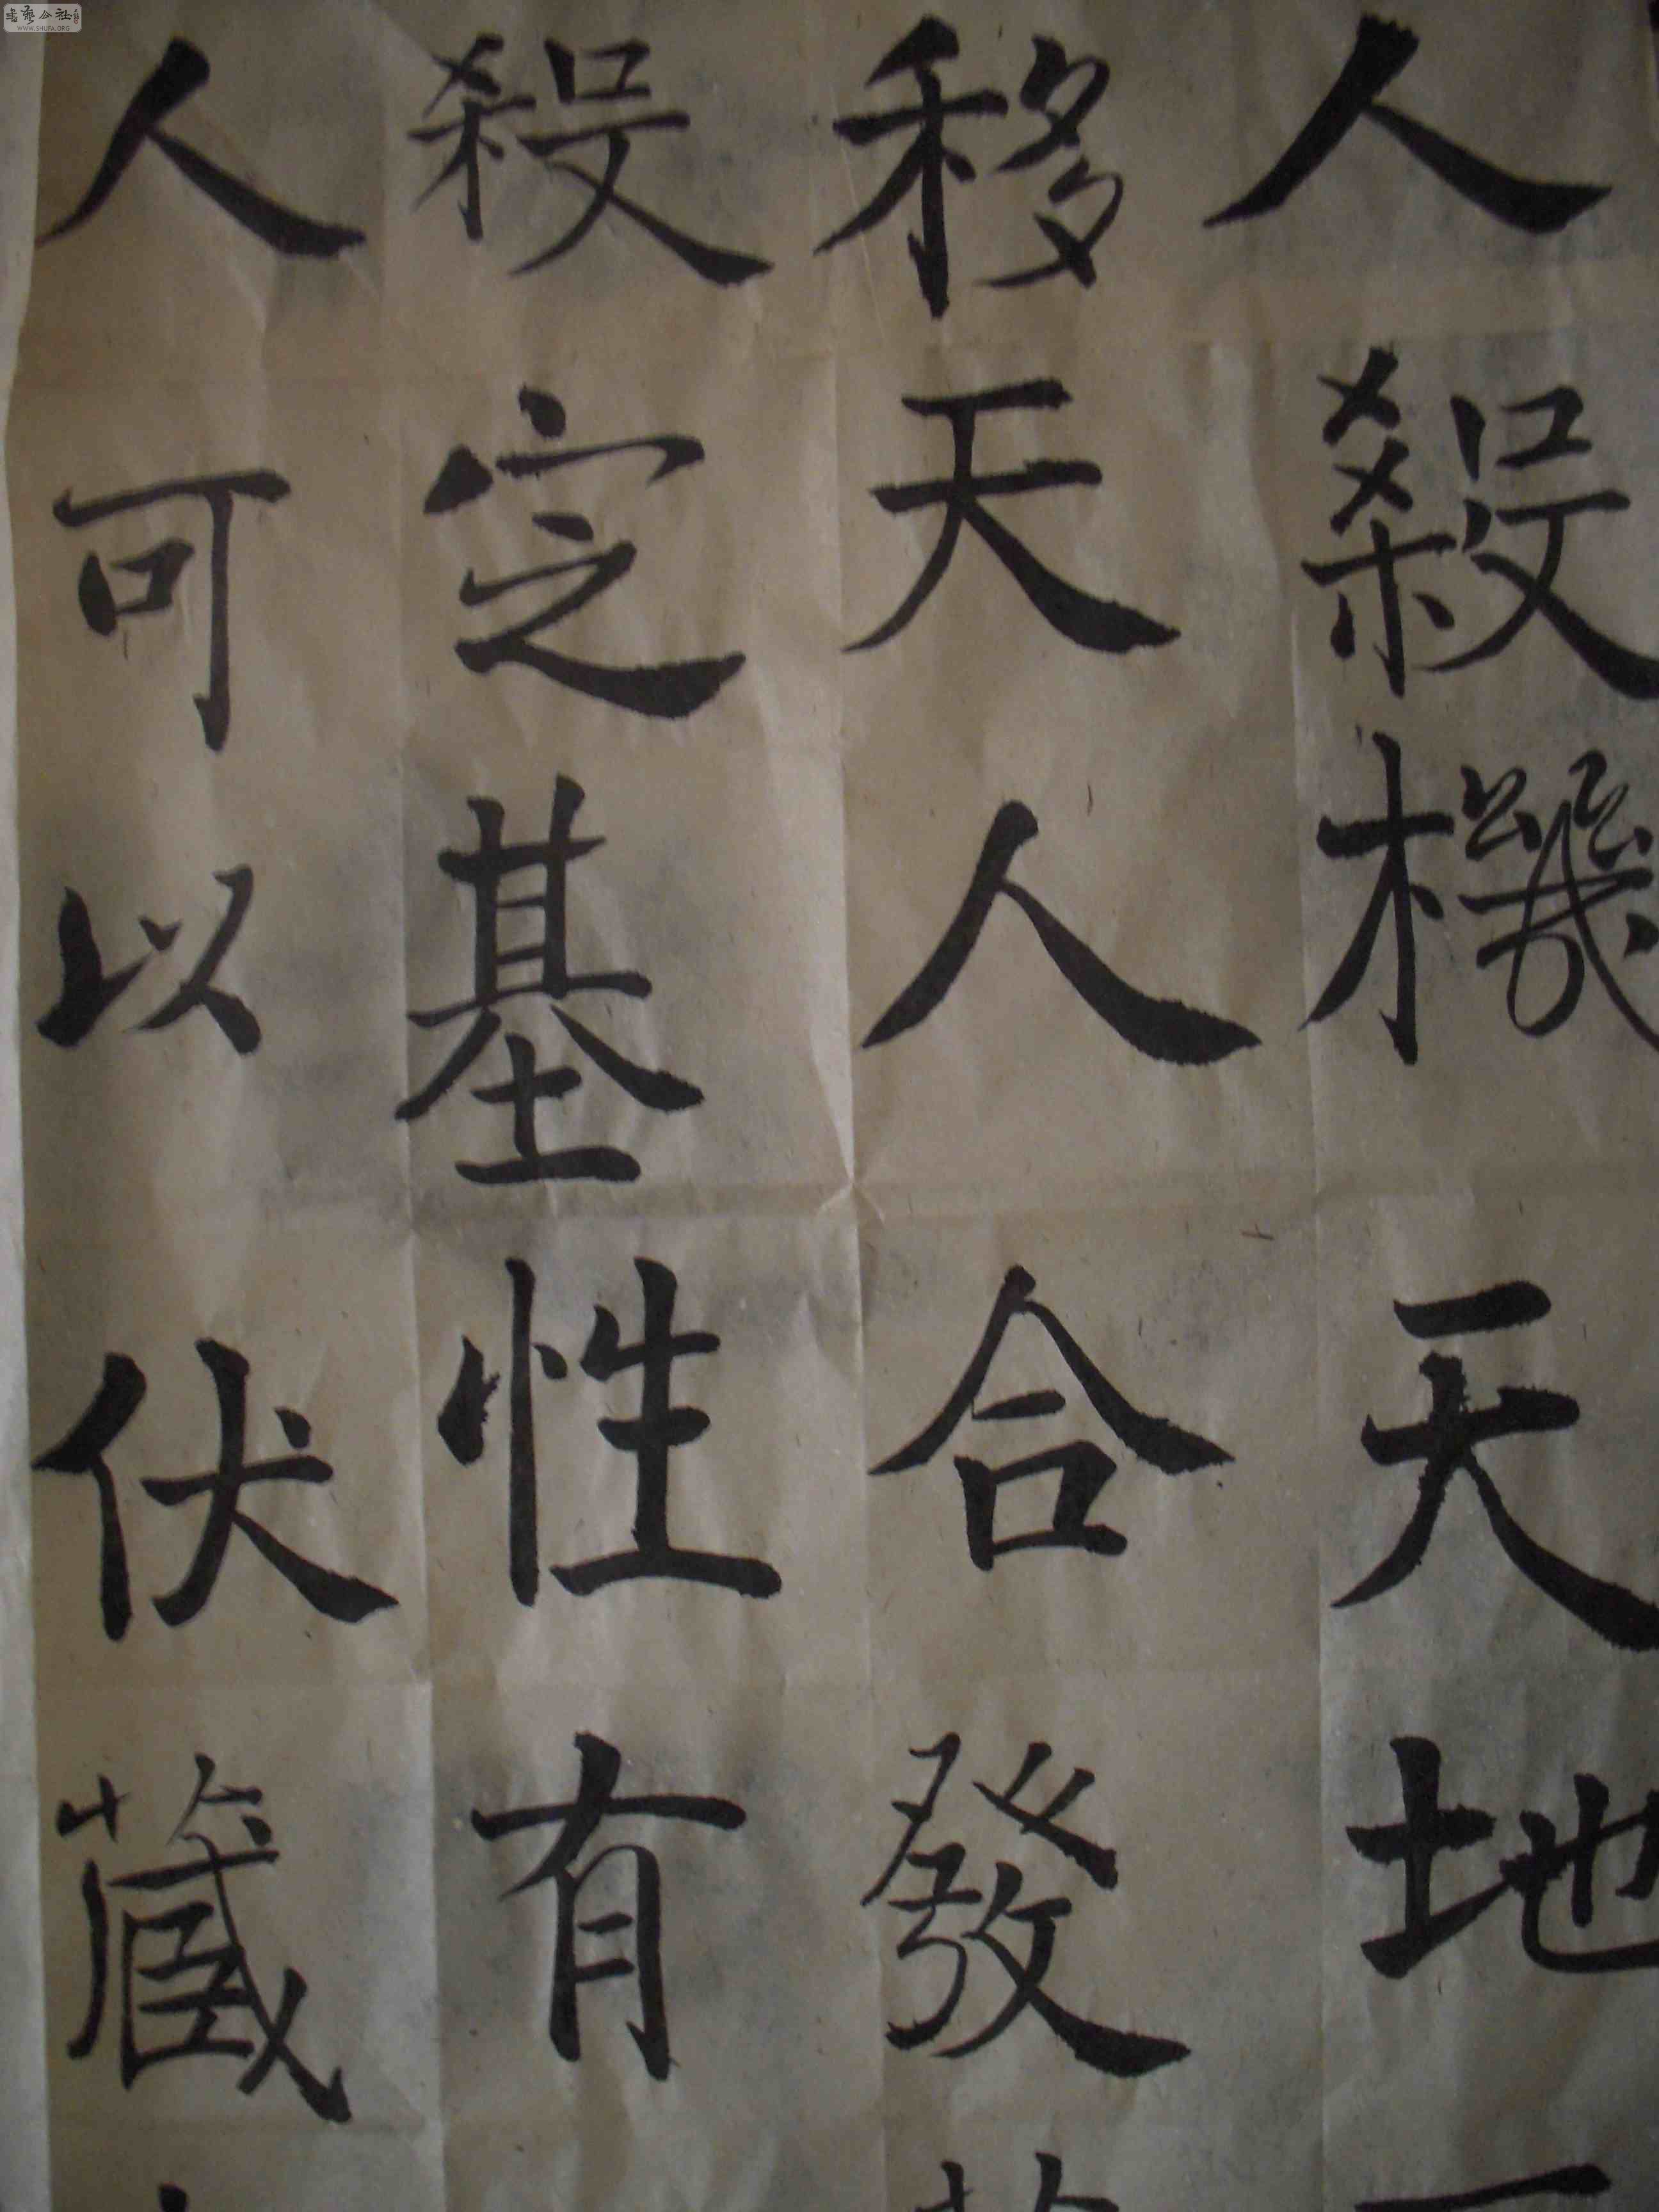 人殺機天地
移天人合發
殺定基性有
人可以伏藏
WWW.SHUFA.ORG